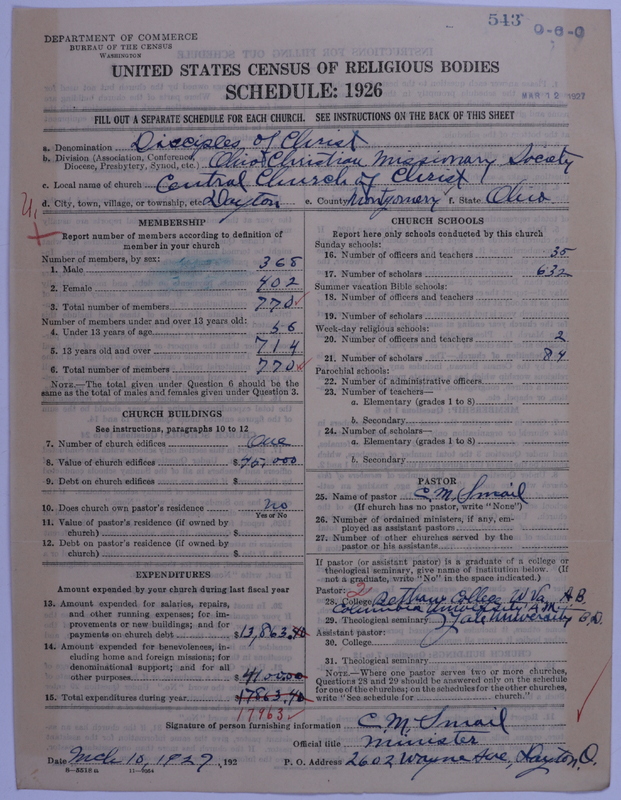 543 0-6-0
DEPARTMENT OF COMMERCE
BUREAU OF THE CENSUS
WASHINGTON
UNITED STATES CENSUS OF RELIGIOUS BODIES
SCHEDULE: 1926
MAR 12 1927
FILL OUT A SEPARATE SCHEDULE FOR EACH CHURCH. SEE INSTRUCTIONS ON THE BACK OF THIS SHEET
a. Denomination Disciples of Christ
b. Division (Association, Conference, Diocese, Presbytery, Synod, etc.) Ohio Christian Missionary Society
c. Local name of church Central Church of Christ
d. City, town, village, or township, etc. Dayton e. County Montgomery f. State Ohio
MEMBERSHIP
Report number of members according to definition of
member in your church
Number of members, by sex:
1. Male 368
2. Female 402
3. Total number of members 770
Number of members under and over 13 years old:
4. Under 13 years of age 56
5. 13 years old and over 714
6. Total number of members 770
NOTE.—The total given under Question 6 should be the
same as the total of males and females given under Question 3.
CHURCH BUILDINGS
See instructions, paragraphs 10 to 12
7. Number of church edifices One
8. Value of church edifices $45,000
9. Debt on church edifices $
10. Does church own pastor's residence No
Yes or No
11. Value of pastor's residence (if owned by
church) $
12. Debt on pastor's residence (if owned by
church) $
EXPENDITURES
Amount expended by your church during last fiscal year
13. Amount expended for salaries, repairs,
and other running expenses; for im-
provements or new buildings; and for
payments on church debt $13,863.40
14. Amount expended for benevolences, in-
cluding home and foreign missions; for
denominational support; and for all
other purposes $4100.00
15. Total expenditures during year $17863.40
17963
CHURCH SCHOOLS
Report here only schools conducted by this church
Sunday schools:
16. Number of officers and teachers 35
17. Number of scholars 632
Summer vacation Bible schools:
18. Number of officers and teachers
19. Number of scholars
Week-day religious schools:
20. Number of officers and teachers 2
21. Number of scholars 84
Parochial schools:
22. Number of administrative officers
23. Number of teachers—
a. Elementary (grades 1 to 8)
b. Secondary
24. Number of scholars—
a. Elementary (grades 1 to 8)
b. Secondary
PASTOR
25. Name of pastor C. M. Smail
(If church has no pastor, write "None")
26. Number of ordained ministers, if any, em-
ployed as assistant pastors
27. Number of other churches served by the
pastor or his assistants
If pastor (or assistant pastor) is a graduate of a college or
theological seminary, give name of institution below. (If
not a graduate, write "No" in the space indicated.)
Pastor: 2
28. College Bethany College W. Va. A.B.
Columbia University A.M.
29. Theological seminary Yale University B.D.
Assistant pastor:
30. College
31. Theological seminary
NOTE.—Where one pastor serves two or more churches,
Questions 28 and 29 should be answered only on the schedule
for one of the churches; on the schedules for the other churches,
write "See schedule for church."
Signature of person furnishing information C. M. Smail
Official title Minister
Date Mch 10, 1927, 192 P. O. Address 2602 Wayne Ave, Dayton, O.
8—5518a 11—9064